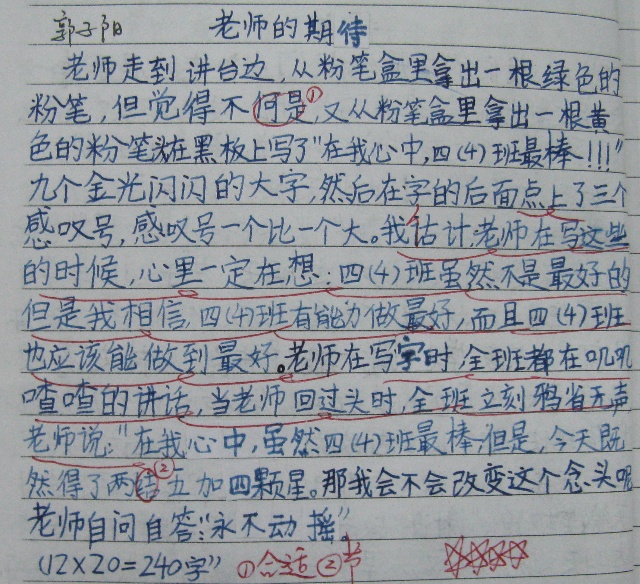 郭子阳 老师的期待
老师走到讲台边,从粉笔盒里拿出一根绿色的
粉笔,但觉得不何是①,又从粉笔盒里拿出一根黄
色的粉笔头在黑板上写了"在我心中,四(4)班最棒!!!"
九个金光闪闪的大字,然后在字的后面点上了三个
感叹号,感叹号一个比一个大。我估计,老师在写这些
的时候,心里一定在想:四(4)班虽然不是最好的
但是我相信,四(4)班有能力做最好,而且四(4)班
也应该能做到最好。老师在写字时,全班都在叽叽
喳喳的讲话,当老师回过头时,全班立刻鸦雀无声
老师说:"在我心中,虽然四(4)班最棒但是,今天既
然得了两②五加四颗星。那我会不会改变这个念头呢
老师自问自答:"永不动摇"。
(12×20=240字" ①合适②节